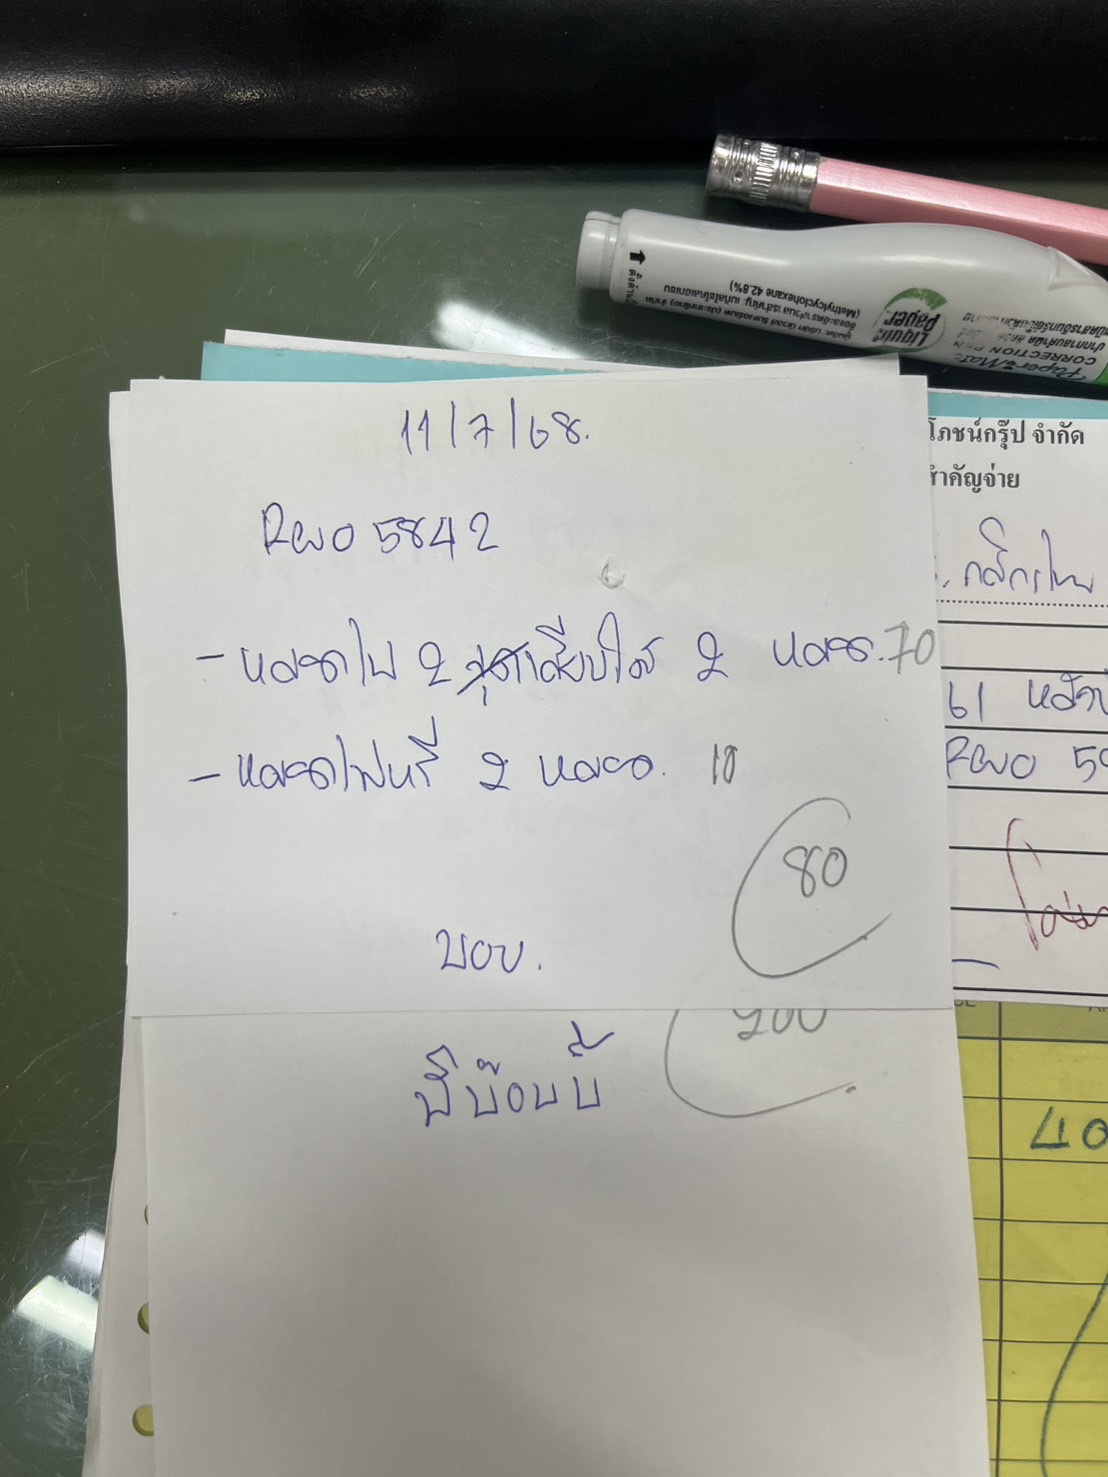 11/7/68.
RWO 5842
- หลอดไฟ 2 จุดเสียบใส 2 หลอด. 70
- หลอดไฟหรี่ 2 หลอด. 10
80
บอย.
200
พี่บ๊อบบี้
โภชน์กรุ๊ป จำกัด
สำคัญจ่าย
กสิกรไทย
61
RWO
40
Liquid Paper
Paper Mate
CORRECTION PEN
(Methylcyclohexane 42.8%)